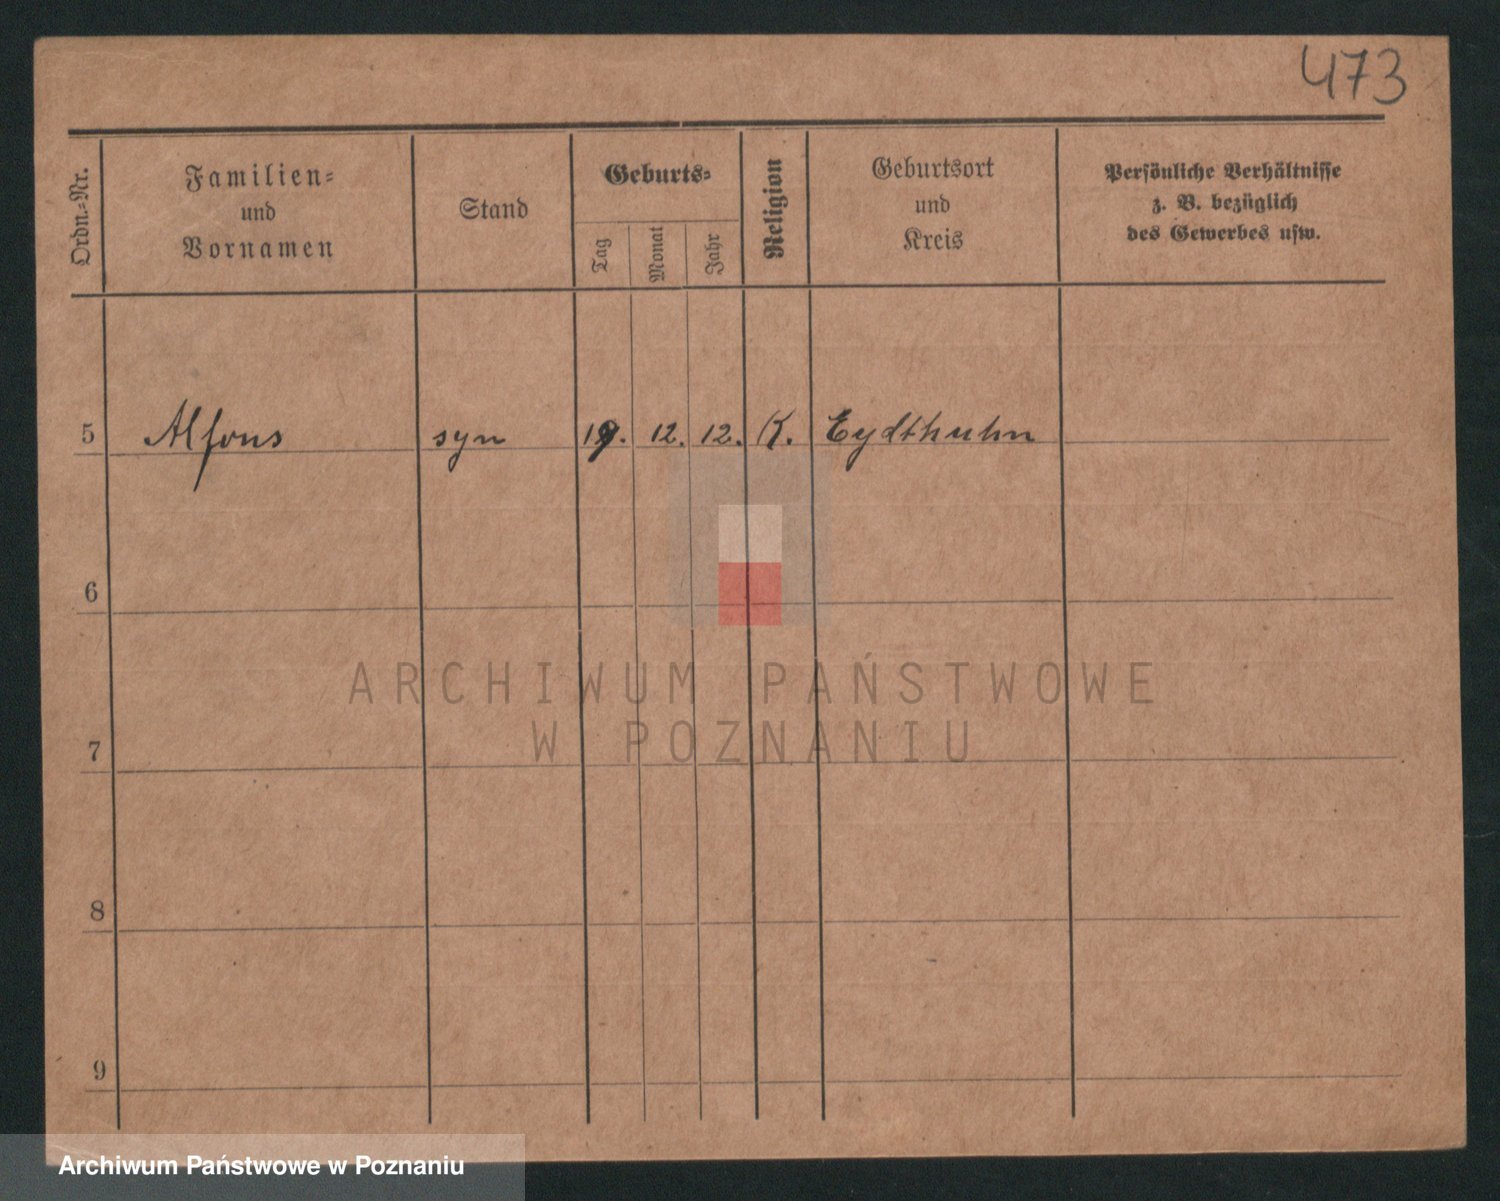 473
Ordn.-Nr.
Familien-
und
Vornamen
Stand
Geburts-
Tag
Monat
Jahr
Religion
Geburtsort
und
Kreis
Persönliche Verhältnisse
z. B. bezüglich
des Gewerbes usw.
5 Alfons syn 19. 12. 12. K. Eydthuhn
6
7
8
9
ARCHIWUM PAŃSTWOWE
W POZNANIU
Archiwum Państwowe w Poznaniu